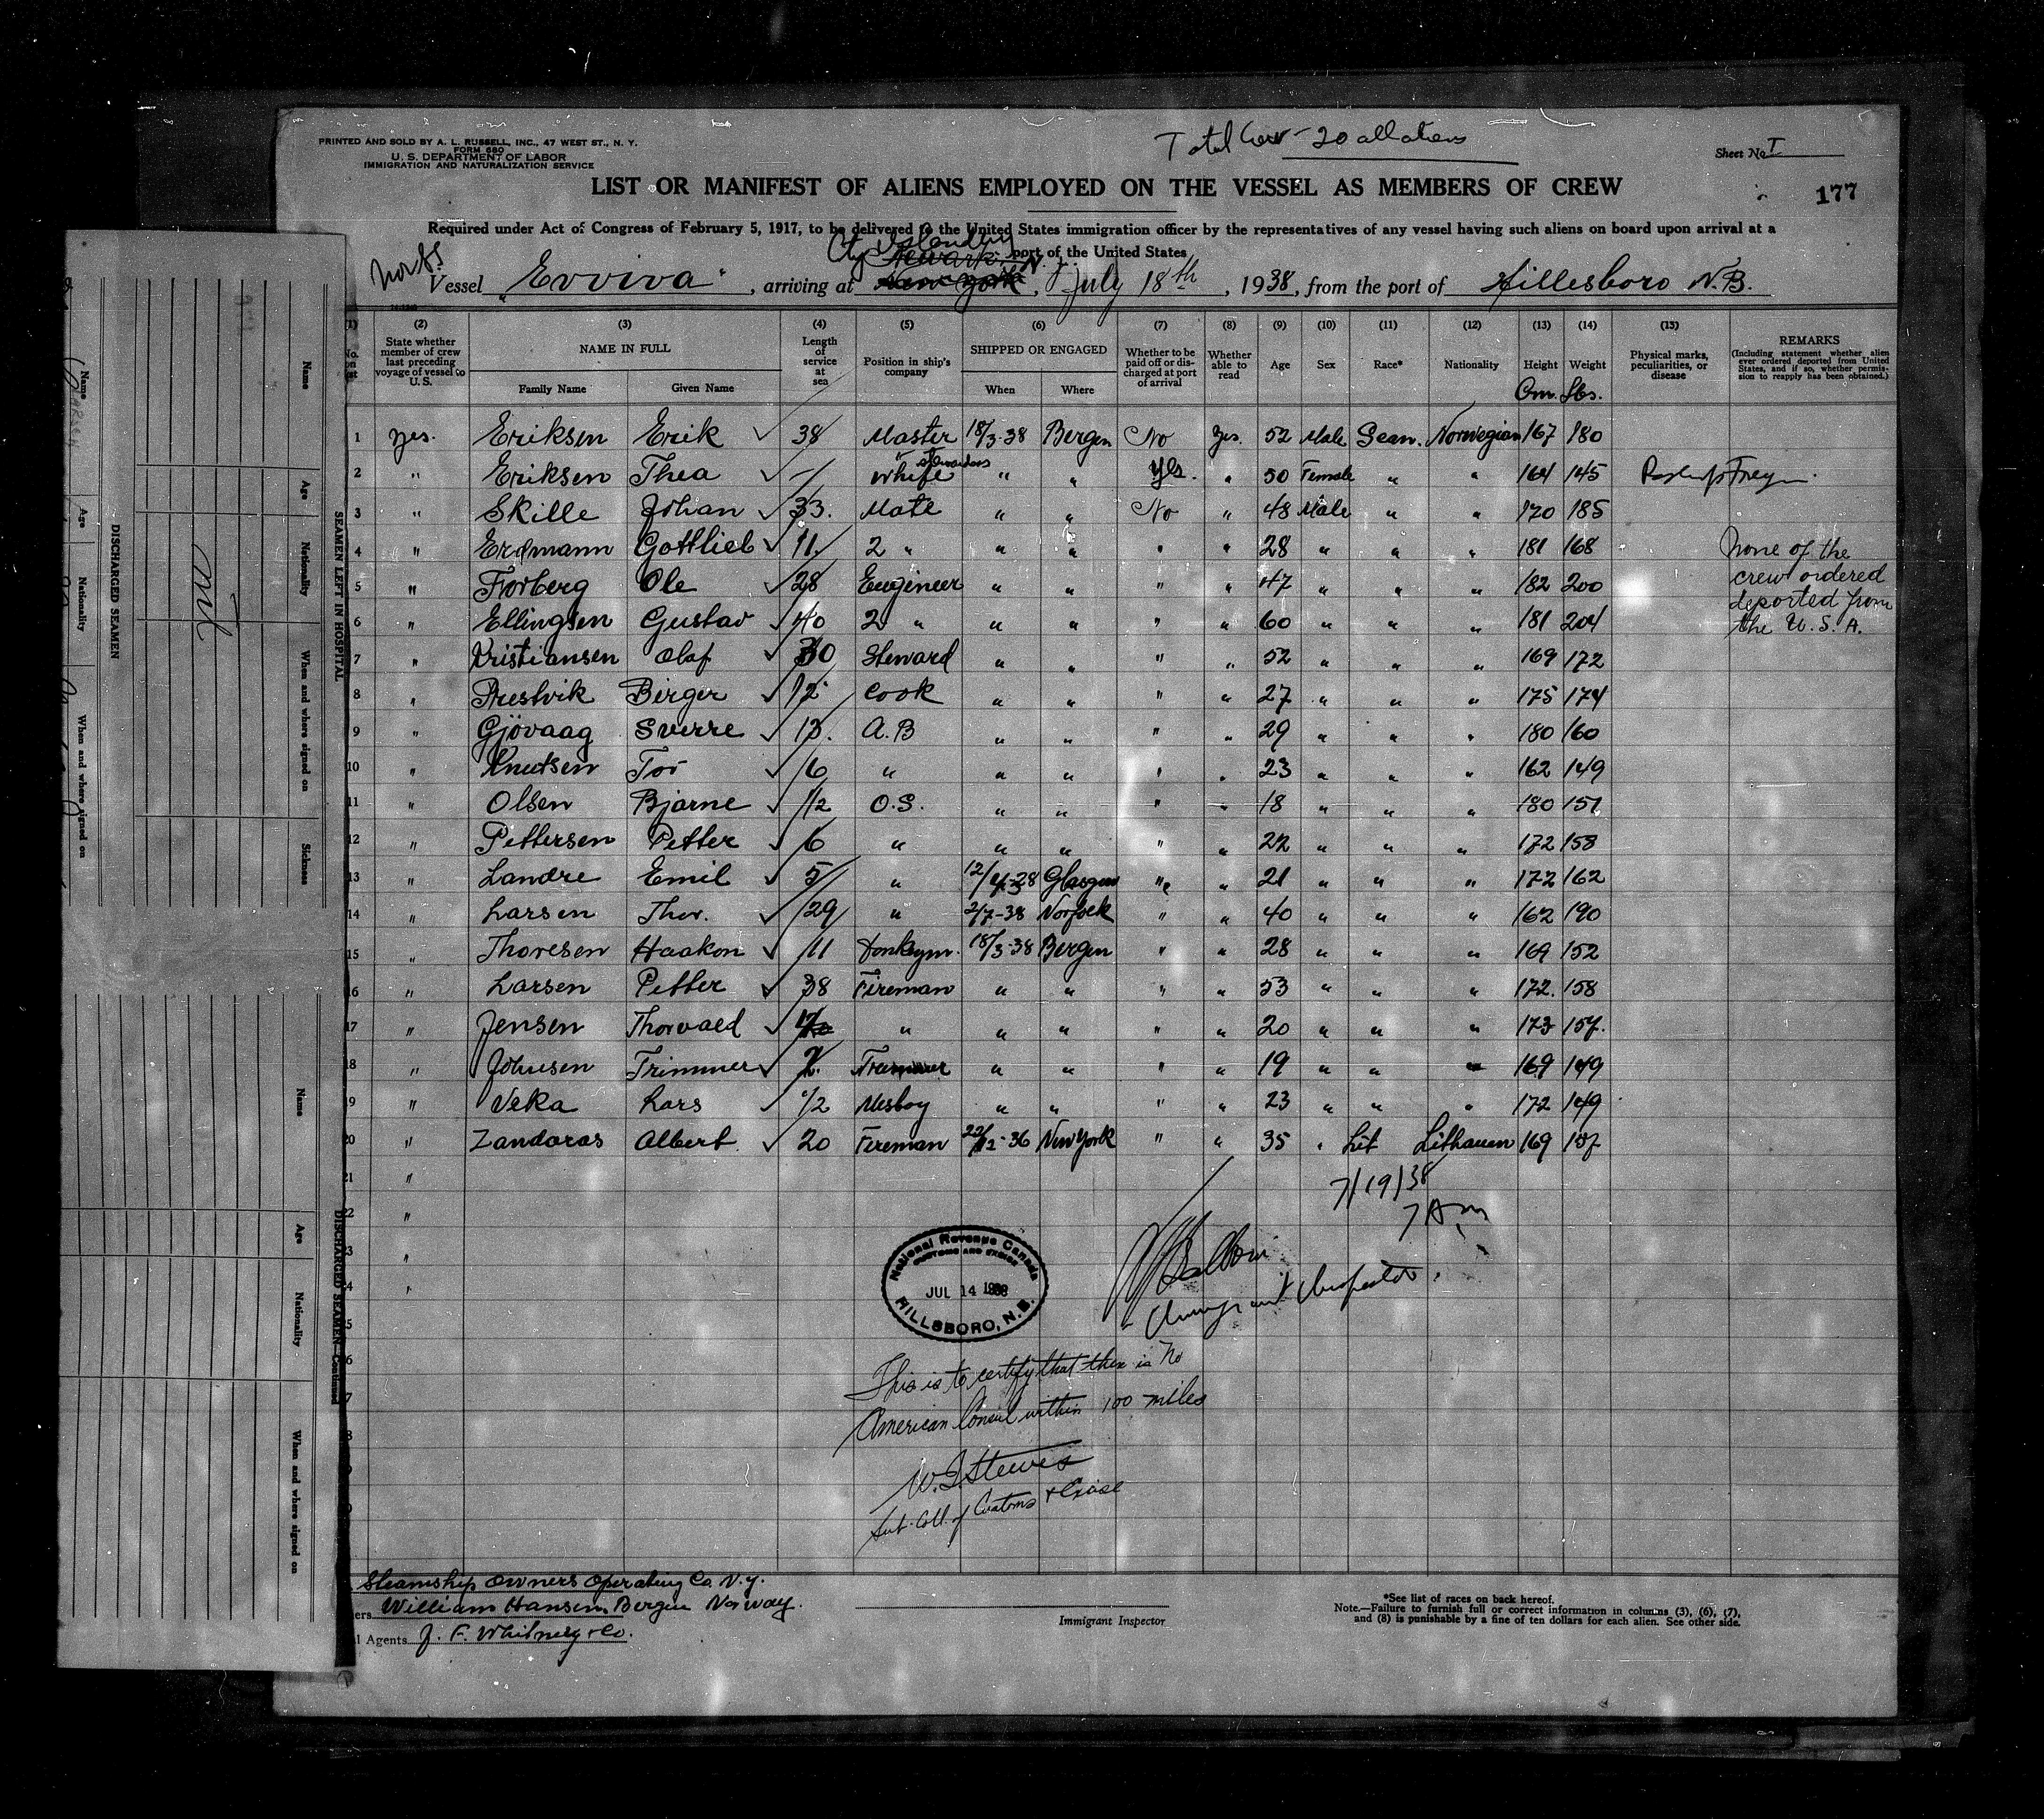 PRINTED AND SOLD BY A. L. RUSSELL, INC., 47 WEST ST., N. Y.
FORM 680
U. S. DEPARTMENT OF LABOR
IMMIGRATION AND NATURALIZATION SERVICE
Total Crew - 20 all aliens
Sheet No. I
LIST OR MANIFEST OF ALIENS EMPLOYED ON THE VESSEL AS MEMBERS OF CREW
177
Required under Act of Congress of February 5, 1917, to be delivered to the United States immigration officer by the representatives of any vessel having such aliens on board upon arrival at a
port of the United States
Vessel "Evviva", arriving at New York, July 18th, 1938, from the port of Hillesboro N.B.
(1) (2) (3) (4) (5) (6) (7) (8) (9) (10) (11) (12) (13) (14) (15)
No. on list
State whether member of crew last preceding voyage of vessel to U.S.
NAME IN FULL
Family Name Given Name
Length of service at sea
Position in ship's company
SHIPPED OR ENGAGED
When Where
Whether to be paid off or discharged at port of arrival
Whether able to read
Age Sex Race* Nationality Height Weight
Cm. Lbs.
Physical marks, peculiarities, or disease
REMARKS
(Including statement whether alien ever ordered deported from United States, and if so, whether permission to reapply has been obtained.)
1 yes. Eriksen Erik 38 Master 18/3-38 Bergen No Yes. 52 Male Scan. Norwegian 167 180
2 " Eriksen Thea - Whife " " Yes. " 50 Female " " 164 145
3 " Skille Johan 33. Mate " " No " 48 Male " " 170 185
4 " Erdmann Gottlieb 11. 2 " " " " " 28 " " " 181 168
5 " Forberg Ole 28 Eengineer " " " " 47 " " " 182 200
6 " Ellingsen Gustav 40 2 " " " " " 60 " " " 181 204
7 " Kristiansen Olaf 30 Steward " " " " 52 " " " 169 172
8 " Prestvik Birger 12 Cook " " " " 27 " " " 175 174
9 " Gjövaag Sverre 13. A.B " " " " 29 " " " 180 160
10 " Knutsen Tor 6 " " " " " 23 " " " 162 149
11 " Olsen Bjarne 1/2 O.S. " " " " 18 " " " 180 151
12 " Pettersen Petter 6 " " " " " 22 " " " 172 158
13 " Landre Emil 5 " Glasgow " " 21 " " " 172 162
14 " Larsen Thor. 29 " 2/7-38 Norfolk " " 40 " " " 162 190
15 " Thoresen Haakon 11 Donkeym. 18/3-38 Bergen " " 28 " " " 169 152
16 " Larsen Petter 38 Fireman " " " " 53 " " " 172. 158
17 " Jensen Thorvald " " " " " 20 " " " 173 157.
18 " Johnsen Trimmer 2. Trimmer " " " " 19 " " " 169 149
19 " Veka Lars 1/2 Mesboy " " " " 23 " " " 172 149
20 " Zandaras Albert 20 Fireman 22/12-36 New York " " 35 " Lit Lithauen 169 157
None of the
crew ordered
deported from
the U. S. A.
21 "
22 "
23 "
24 "
7/19/38
7 Am
National Revenue Canada
CUSTOMS AND EXCISE
JUL 14 1938
HILLSBORO, N.B.
Immigrant Inspector
This is to certify that there is no
American Consul within 100 miles
W. J. Steeves
Sub. Coll. of Customs & Excise
Steamship Owners Operating Co. N.Y.
William Hansen, Bergen Norway.
Agents J. F. Whitney & Co.
Immigrant Inspector
*See list of races on back hereof.
Note.—Failure to furnish full or correct information in columns (3), (6), (7),
and (8) is punishable by a fine of ten dollars for each alien. See other side.
SEAMEN LEFT IN HOSPITAL
Name Age Nationality When and where signed on Sickness
DISCHARGED SEAMEN
Name Age Nationality When and where signed on
DISCHARGED SEAMEN—Continued
Name Age Nationality When and where signed on